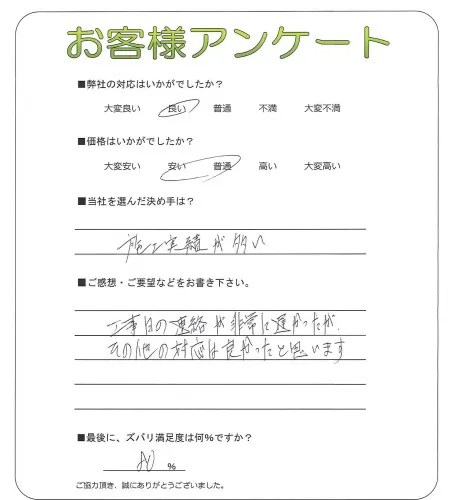 お客様アンケート
■弊社の対応はいかがでしたか？
大変良い 良い 普通 不満 大変不満
■価格はいかがでしたか？
大変安い 安い 普通 高い 大変高い
■当社を選んだ決め手は？
施工実績が多い
■ご感想・ご要望などをお書き下さい。
工事日の連絡が非常に遅かったが、
その他の対応は良かったと思います
■最後に、ズバリ満足度は何%ですか？
%
ご協力頂き、誠にありがとうございました。